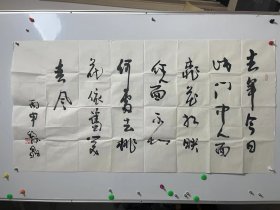 去年今日
此门中人面
桃花相映
红人面不知
何處去桃
花依舊笑
春风
丙申